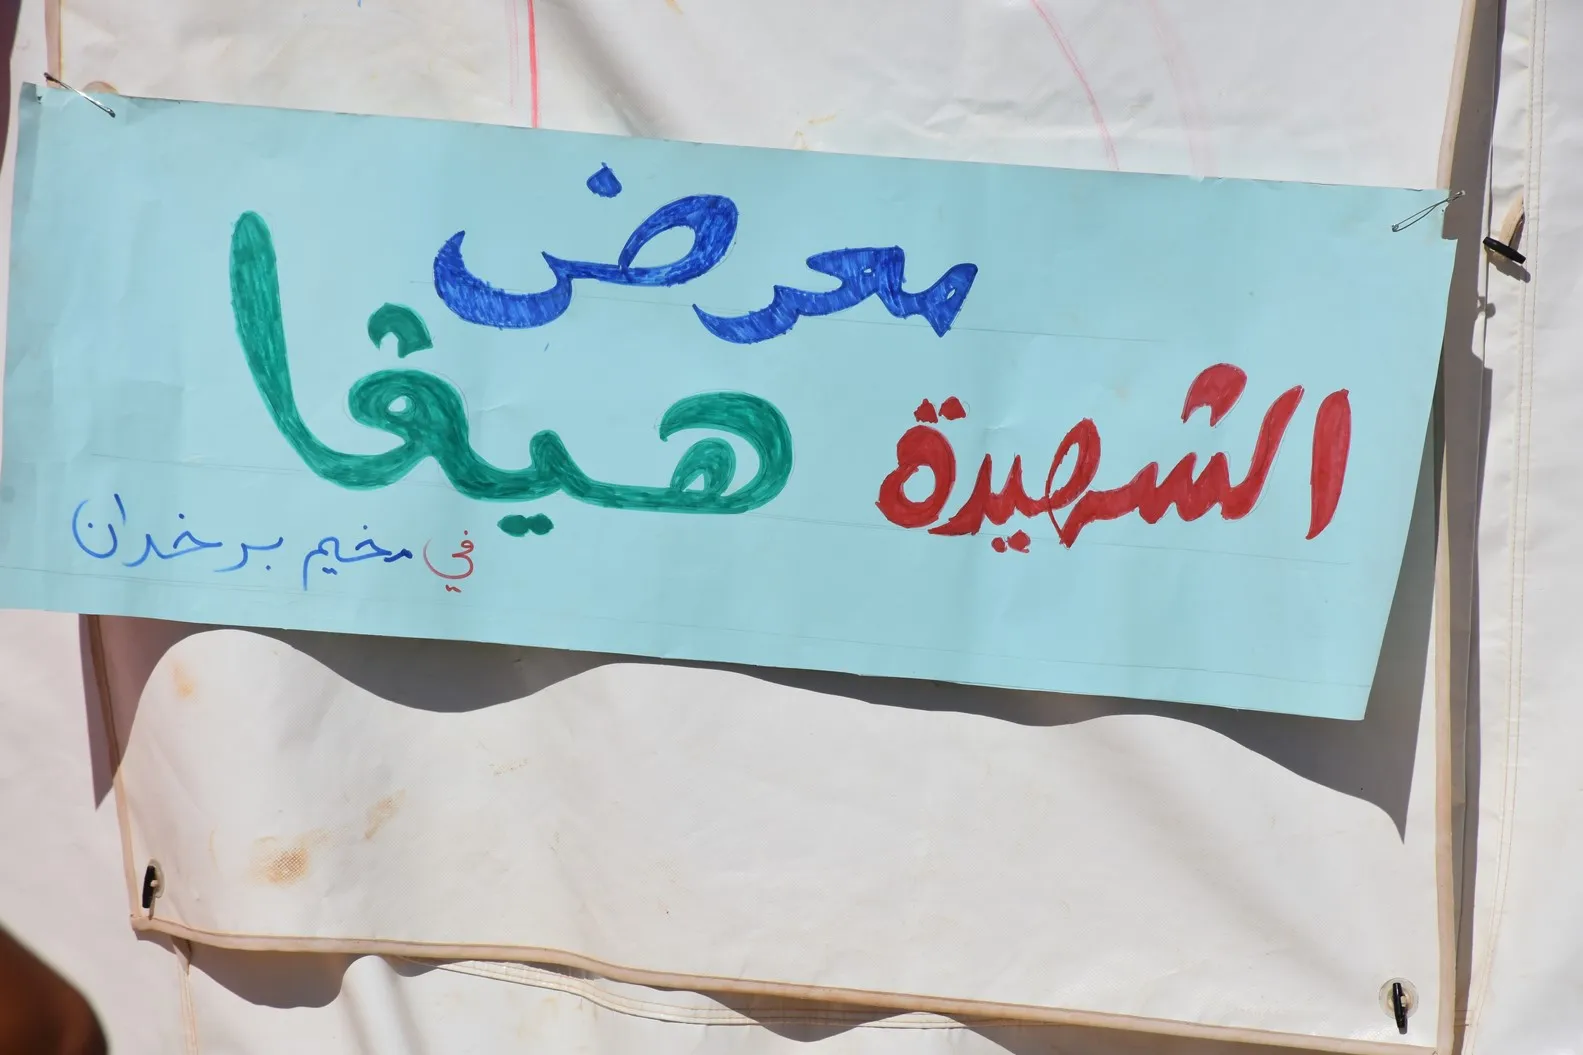 معرض
الشهيدة هيفا
في مخيم برخدان